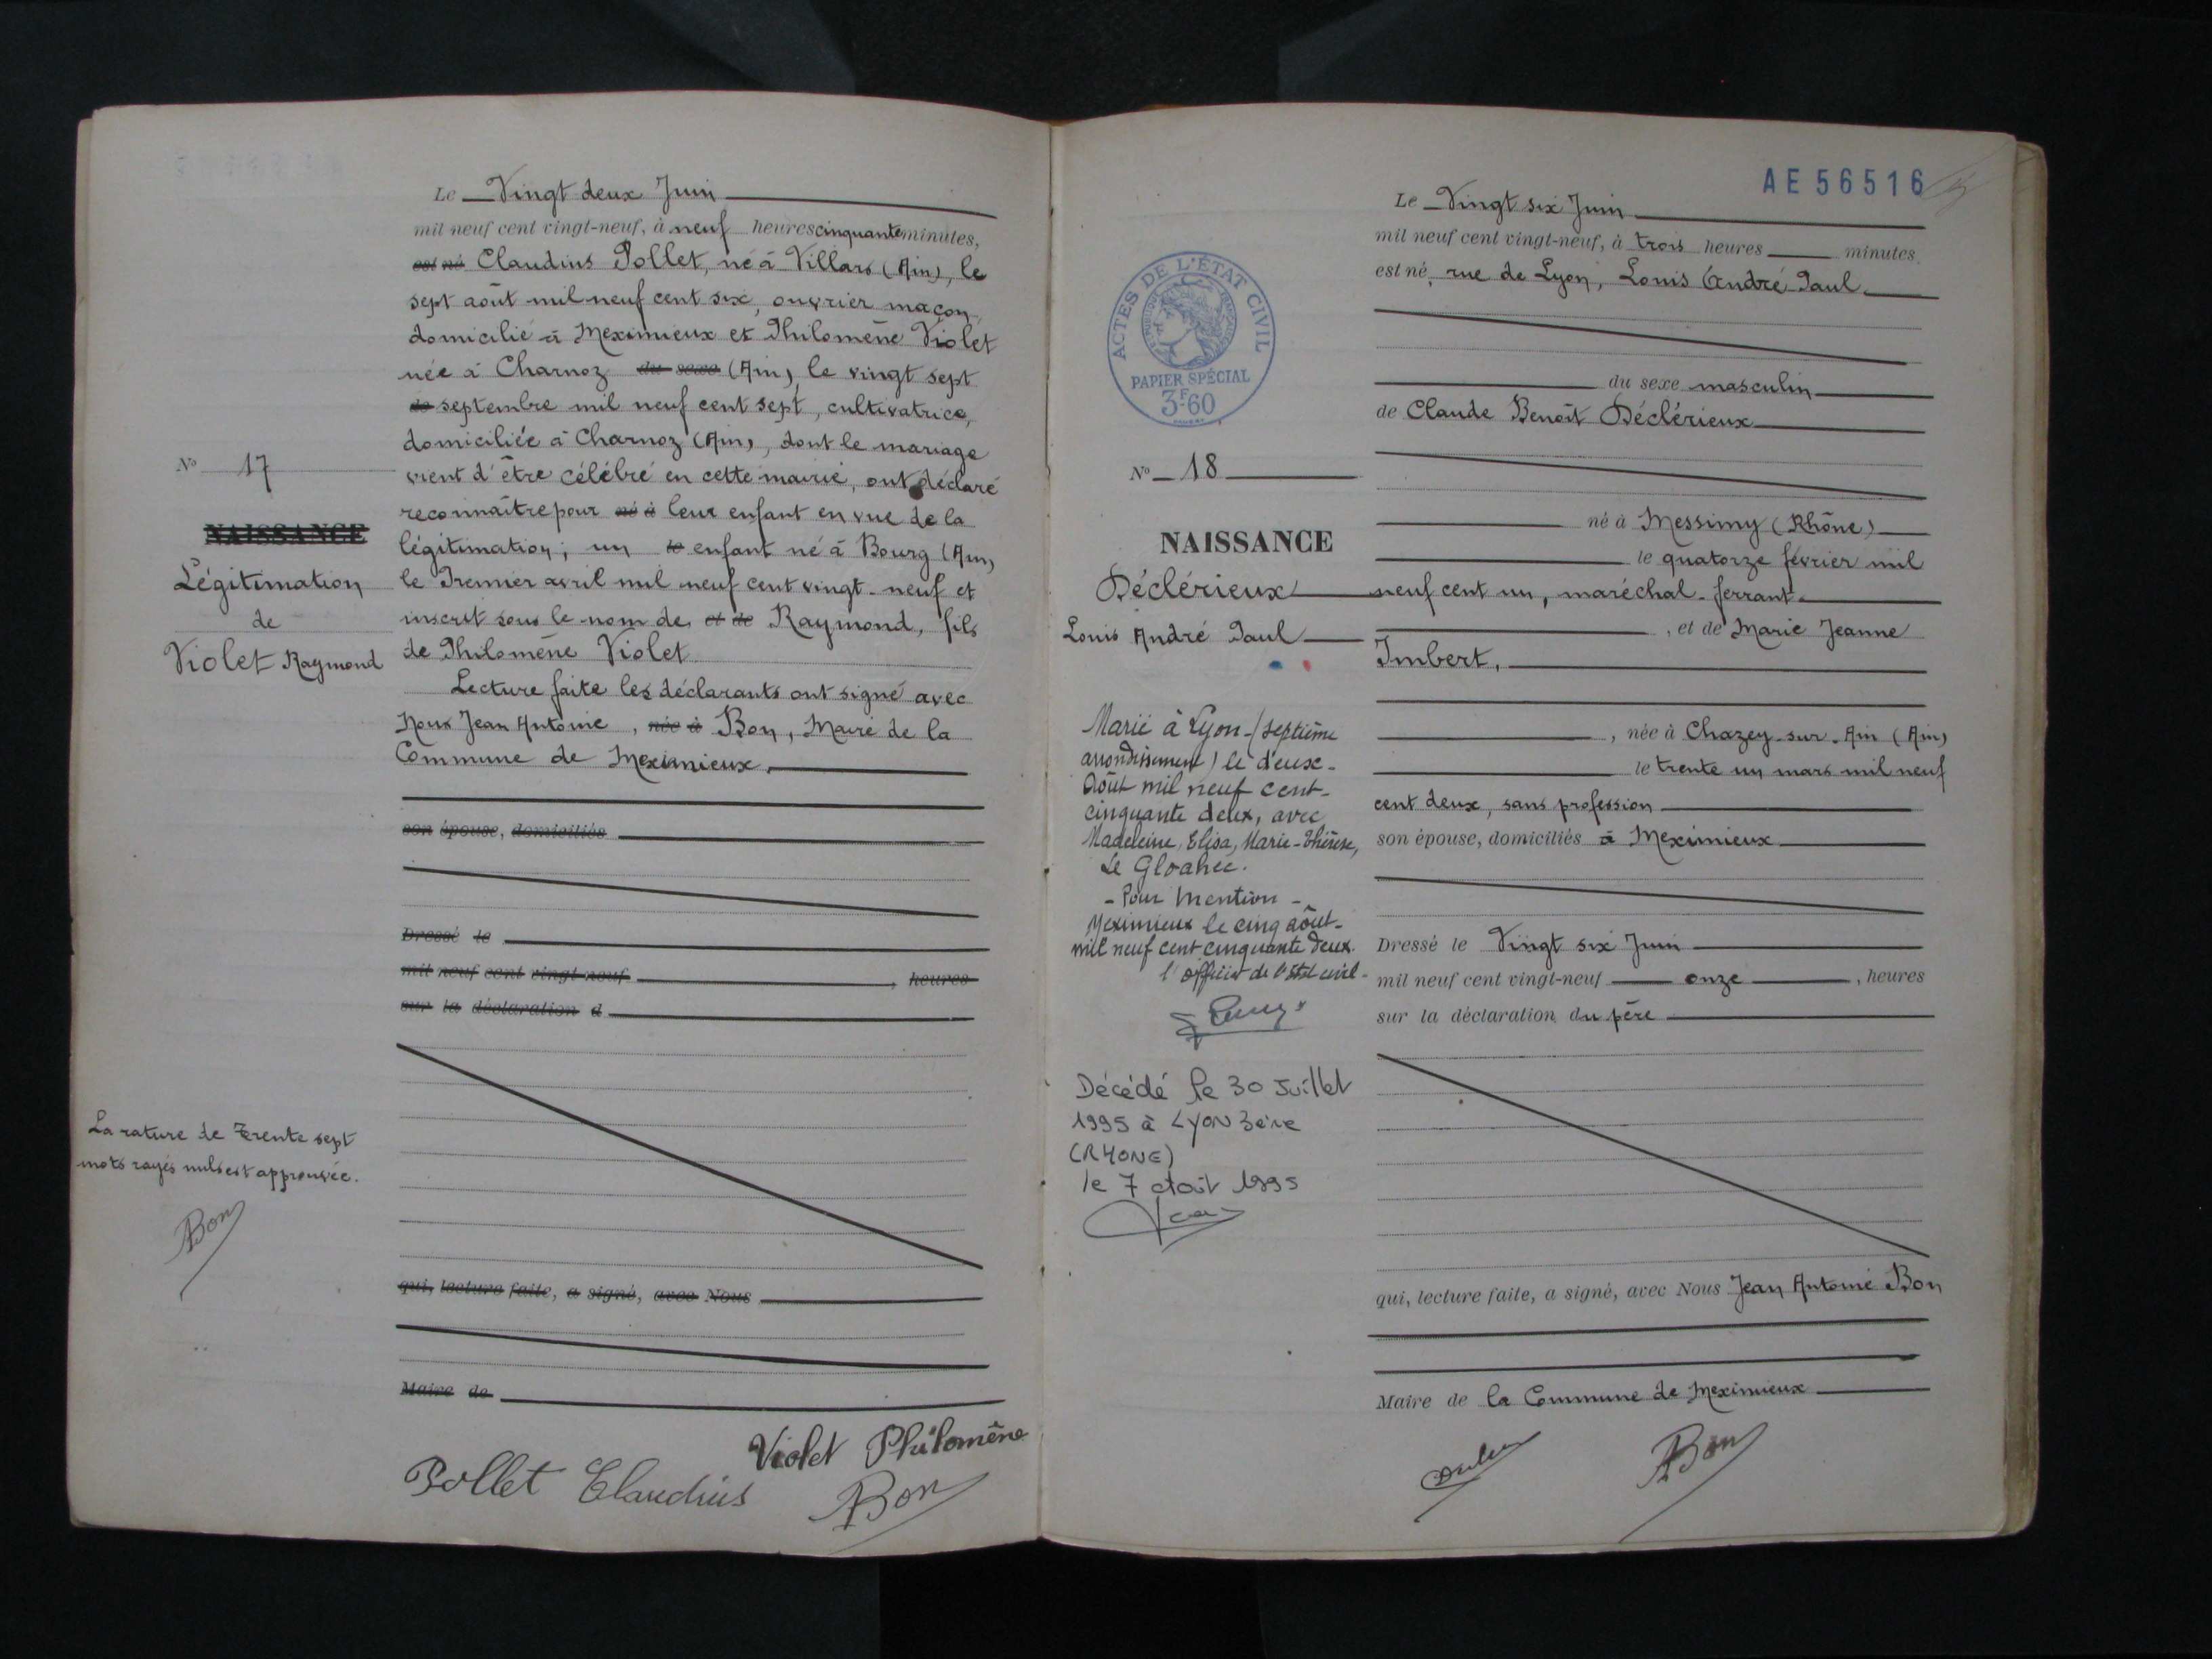 Le Vingt-deux Juin
mil neuf cent vingt-neuf, à neuf heures cinquante minutes,
est né Claudius Pollet, né à Villars (Ain), le
sept août mil neuf cent six, ouvrier maçon,
domicilié à Meximieux et Philomène Violet
née à Charnoz du sexe (Ain), le vingt sept
de septembre mil neuf cent sept, cultivatrice,
domiciliée à Charnoz (Ain), dont le mariage
vient d'être célébré en cette mairie, ont déclaré
reconnaître pour né à leur enfant en vue de la
légitimation; un le enfant né à Bourg (Ain)
le Premier avril mil neuf cent vingt-neuf et
inscrit sous le nom de, et de Raymond, fils
de Philomène Violet
Lecture faite les déclarants ont signé avec
Nous Jean Antoine, née à Bon, Maire de la
Commune de Meximieux.
son épouse, domiciliés
Dressé le
mil neuf cent vingt-neuf, heures
sur la déclaration d
qui, lecture faite, a signé, avec Nous
Maire de
Violet Philomène
Pollet Claudius
Bon
No 17
NAISSANCE
Légitimation
de
Violet Raymond
La rature de trente sept
mots rayés nuls est approuvée.
Bon
AE 56516
ACTES DE L'ÉTAT CIVIL
PAPIER SPÉCIAL
3F60
No 18
NAISSANCE
Déclérieux
Louis André Paul
Marié à Lyon (septième
arrondissement) le deux
Août mil neuf cent
cinquante deux, avec
Madeleine, Elisa, Marie-Thérèse,
Le Gloahec.
- Pour Mention -
Meximieux le cinq août
mil neuf cent cinquante deux.
l'officier de l'Etat civil
Décédé le 30 Juillet
1995 à LYON 3ème
(RHONE)
le 7 août 1995
Le Vingt six Juin
mil neuf cent vingt-neuf, à trois heures minutes
est né, rue de Lyon, Louis André Paul
du sexe masculin
de Claude Benoît Déclérieux
né à Messimy (Rhône)
le quatorze février mil
neuf cent un, maréchal-ferrant
, et de Marie Jeanne
Imbert,
, née à Chazey-sur-Ain (Ain)
le trente un mars mil neuf
cent deux, sans profession
son épouse, domiciliés à Meximieux
Dressé le Vingt six Juin
mil neuf cent vingt-neuf onze, heures
sur la déclaration du père
qui, lecture faite, a signé, avec Nous Jean Antoine Bon
Maire de la Commune de Meximieux
Bon